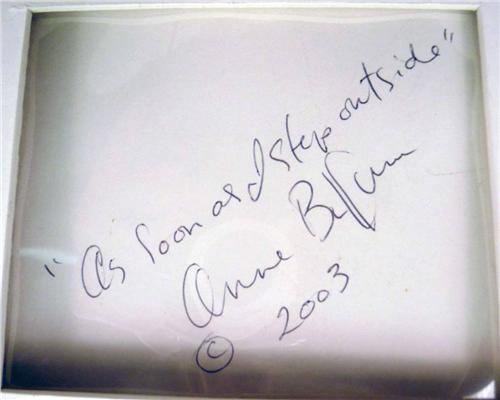 "As Soon as I step outside"
Anne
© 2003